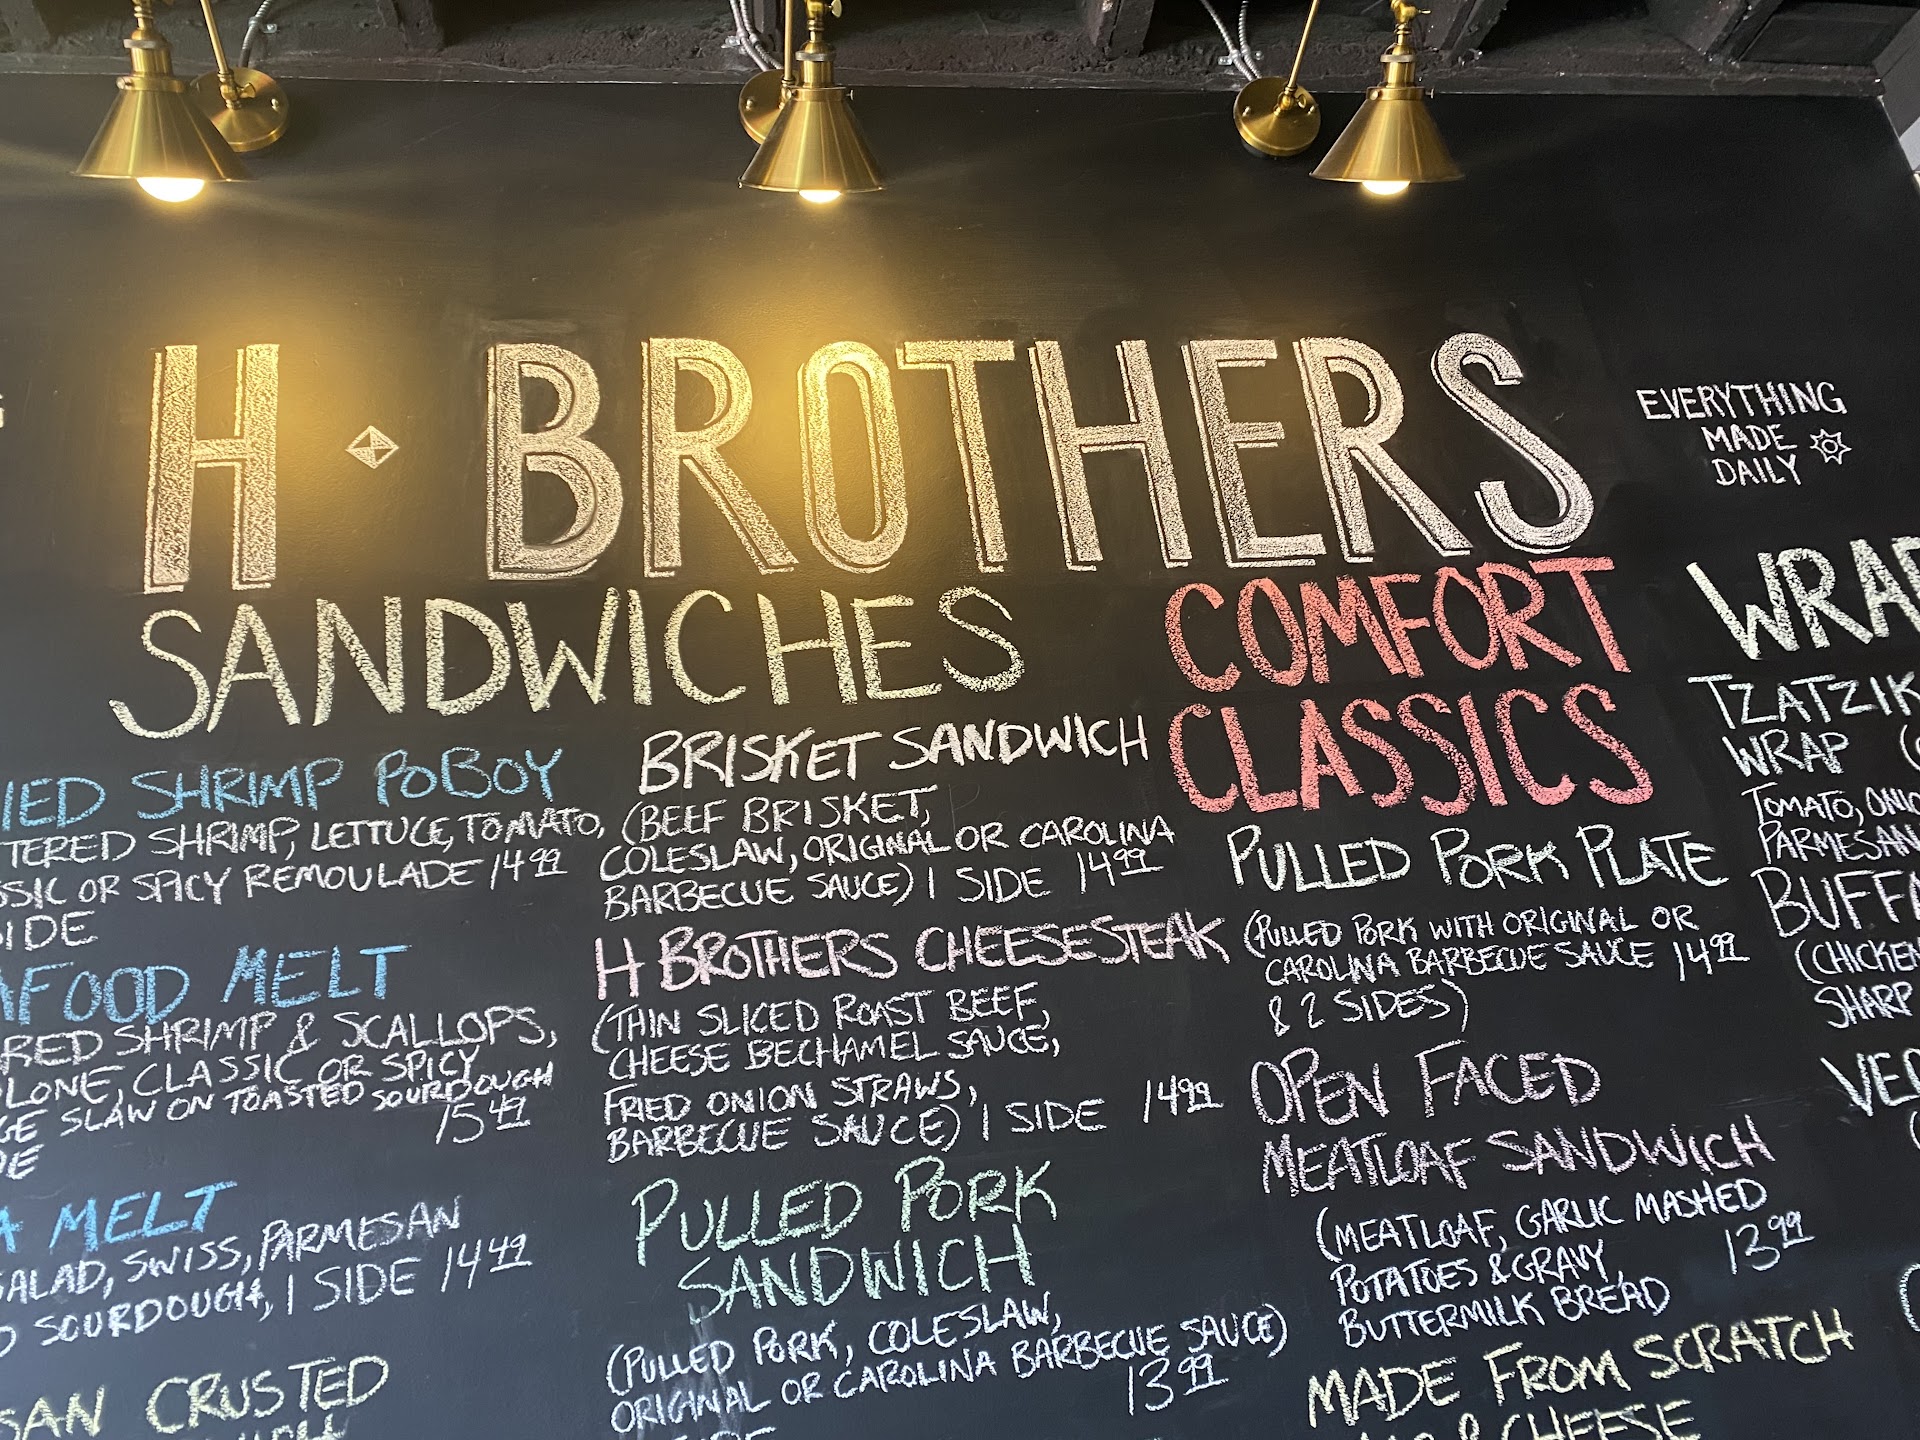 H BROTHERS
EVERYTHING
MADE
DAILY
SANDWICHES
SHRIMP POBOY
SHRIMP, LETTUCE, TOMATO,
OR SPICY REMOULADE 14 99
MELT
SHRIMP & SCALLOPS,
CLASSIC OR SPICY
SLAW ON TOASTED SOURDOUGH
15 49
MELT
SWISS, PARMESAN
SOURDOUGH, 1 SIDE 14 49
CRUSTED
BRISKET SANDWICH
(BEEF BRISKET,
COLESLAW, ORIGINAL OR CAROLINA
BARBECUE SAUCE) 1 SIDE 14 99
H BROTHERS CHEESESTEAK
(THIN SLICED ROAST BEEF,
CHEESE BECHAMEL SAUCE,
FRIED ONION STRAWS,
BARBECUE SAUCE) 1 SIDE 14 99
PULLED PORK
SANDWICH
(PULLED PORK, COLESLAW,
ORIGINAL OR CAROLINA BARBECUE SAUCE)
13 99
COMFORT
CLASSICS
PULLED PORK PLATE
(PULLED PORK WITH ORIGINAL OR
CAROLINA BARBECUE SAUCE 14 99
& 2 SIDES)
OPEN FACED
MEATLOAF SANDWICH
(MEATLOAF, GARLIC MASHED
POTATOES & GRAVY,
BUTTERMILK BREAD 13 99
MADE FROM SCRATCH
& CHEESE
WRAP
TZATZIK
WRAP
TOMATO,
PARMESAN
(CHICKEN
SHARP